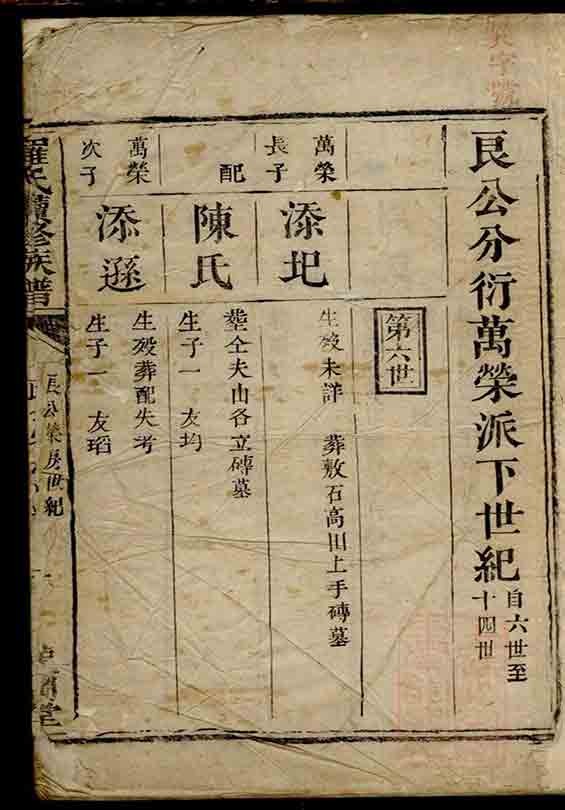 艮公分衍萬榮派下世紀自六世至十四世
第六世
萬榮長子
添圯
生歿未詳 葬敷石高田上手磚墓
配
陳氏
塟仝夫山各立磚墓
生子一 友均
萬榮次子
添遜
生歿葬配失考
生子一 友瑫
羅氏續修族譜
艮公榮房世紀
堂